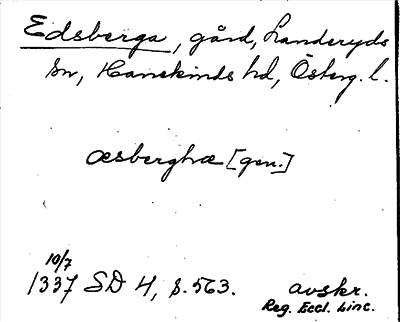 Edsberga, gård, Landeryds
sn, Hanekinds hd, Österg. l.
æsberghæ [gen.]
10/7
1337 SD 4, s. 563. avskr.
Reg. Eccl. Linc.